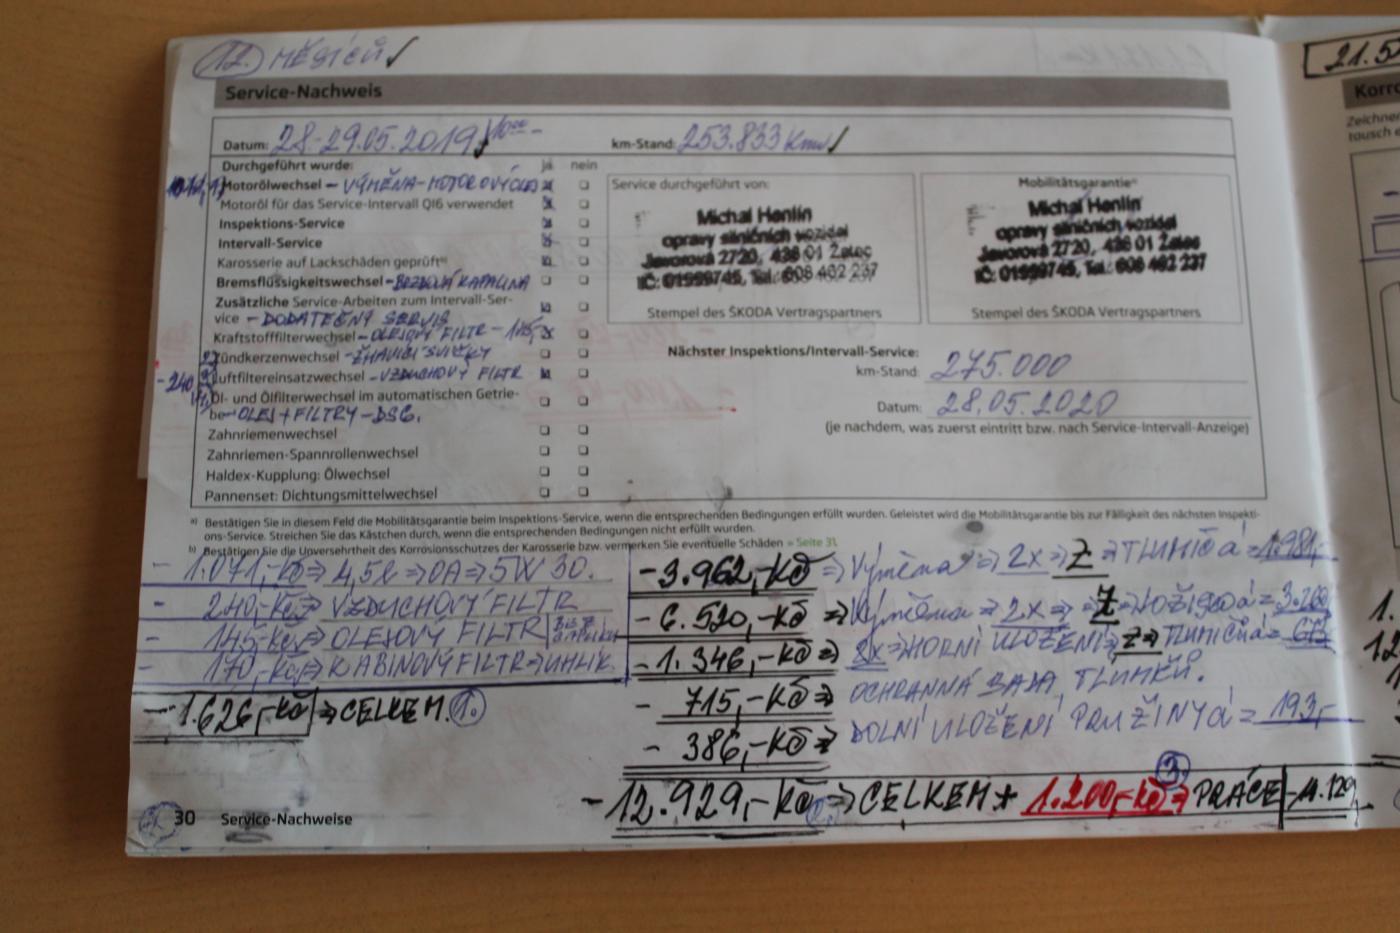 12. MĚSÍCŮ ✓
21.5
Service-Nachweis
Korro
Zeichner
tausch
Datum: 28-29.05.2019
km-Stand: 253.833 Km ✓
Durchgeführt wurde: ja nein
Motorölwechsel - VÝMĚNA-MOTOROVÝ OLEJ
Motoröl für das Service-Intervall QI6 verwendet
Inspektions-Service
Intervall-Service
Karosserie auf Lackschäden geprüft
Bremsflüssigkeitswechsel - BRZDOVÁ KAPALINA
Zusätzliche Service-Arbeiten zum Intervall-Ser-
vice - DODATEČNÝ SERVIS
Kraftstofffilterwechsel - OLEJOVÝ FILTR - 145,-
Zündkerzenwechsel - ŽHAVIČÍ SVÍČKY
-240 Luftfiltereinsatzwechsel - VZDUCHOVÝ FILTR
Öl- und Ölfilterwechsel im automatischen Getrie-
be - OLEJ + FILTRY - DSG.
Zahnriemenwechsel
Zahnriemen-Spannrollenwechsel
Haldex-Kupplung: Ölwechsel
Pannenset: Dichtungsmittelwechsel
Service durchgeführt von:
Michal Henlín
opravy silničních vozidel
Javorová 2720, 438 01 Žatec
IČ: 01999745, Tel.: 608 462 237
Stempel des ŠKODA Vertragspartners
Mobilitätsgarantie
Michal Henlín
opravy silničních vozidel
Javorová 2720, 438 01 Žatec
IČ: 01999745, Tel.: 608 462 237
Stempel des ŠKODA Vertragspartners
Nächster Inspektions/Intervall-Service:
km-Stand: 275.000
Datum: 28.05.2020
(je nachdem, was zuerst eintritt bzw. nach Service-Intervall-Anzeige)
a) Bestätigen Sie in diesem Feld die Mobilitätsgarantie beim Inspektions-Service, wenn die entsprechenden Bedingungen erfüllt wurden. Geleistet wird die Mobilitätsgarantie bis zur Fälligkeit des nächsten Inspekti-
ons-Service. Streichen Sie das Kästchen durch, wenn die entsprechenden Bedingungen nicht erfüllt wurden.
b) Bestätigen Sie die Unversehrtheit des Korrosionsschutzes der Karosserie bzw. vermerken Sie eventuelle Schäden » Seite 31.
- 1.071,-Kč ⇒ 4,5l ⇒ OA ⇒ 5W30.
- 240,-Kč ⇒ VZDUCHOVÝ FILTR
- 145,-Kč ⇒ OLEJOVÝ FILTR
- 170,-Kč ⇒ KABINOVÝ FILTR ⇒ UHLÍK.
- 1.626,-Kč ⇒ CELKEM. 1.
- 3.962,-Kč ⇒ Výměna ⇒ 2x ⇒ Z ⇒ TLUMIČ á = 1.981,-
- 6.520,-Kč ⇒ Výměna ⇒ 2x ⇒ Z ⇒ á = 3.260
- 1.346,-Kč ⇒ 2x ⇒ HORNÍ ULOŽENÍ ⇒ Z ⇒ TLUMIČŮ á = 673
- 715,-Kč ⇒ OCHRANNÁ SADA TLUMIČŮ.
- 386,-Kč ⇒ DOLNÍ ULOŽENÍ PRUŽINY á = 193,-
- 12.929,-Kč ⇒ CELKEM + 1.200,-Kč ⇒ PRÁCE 3.
30 Service-Nachweise